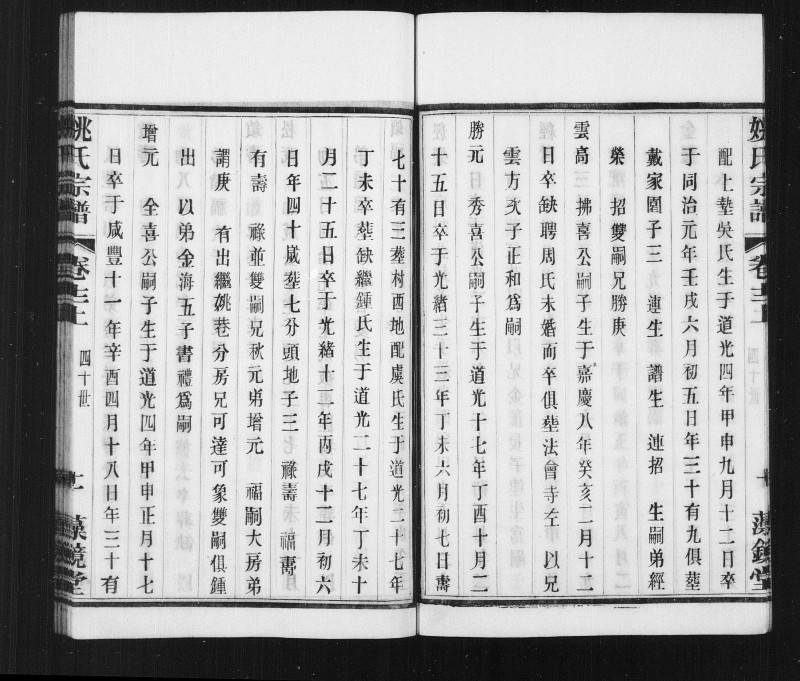 配上墊吳氏生于道光四年甲申九月十二日卒
于同治元年壬戌六月初五日年三十有九俱葬
戴家園子三 連生 譜生 連招 生嗣弟經
榮 招雙嗣兄勝庚
雲高 拂喜公嗣子生于嘉慶八年癸亥二月十二
日卒缺聘周氏未婚而卒俱葬法會寺左 以兄
雲方次子正和爲嗣
勝元 日秀喜公嗣子生于道光十七年丁酉十月二
十五日卒于光緒三十三年丁未六月初七日壽
七十有三葬村西地配虞氏生于道光二十七年
丁未卒葬缺繼鍾氏生于道光二十七年丁未十
月二十五日卒于光緒十二年丙戌十二月初六
日年四十歲葬七分頭地子三 祿壽 福壽
有壽 祿並雙嗣兄秋元弟增元 福嗣大房弟
謂庚 有出繼姚巷分房兄可達可象雙嗣俱鍾
出 以弟金海五子書禮爲嗣
增元 全喜公嗣子生于道光四年甲申正月十七
日卒于咸豐十一年辛酉四月十八日年三十有
姚氏宗譜
卷 上
四十世
十一
藻鏡堂